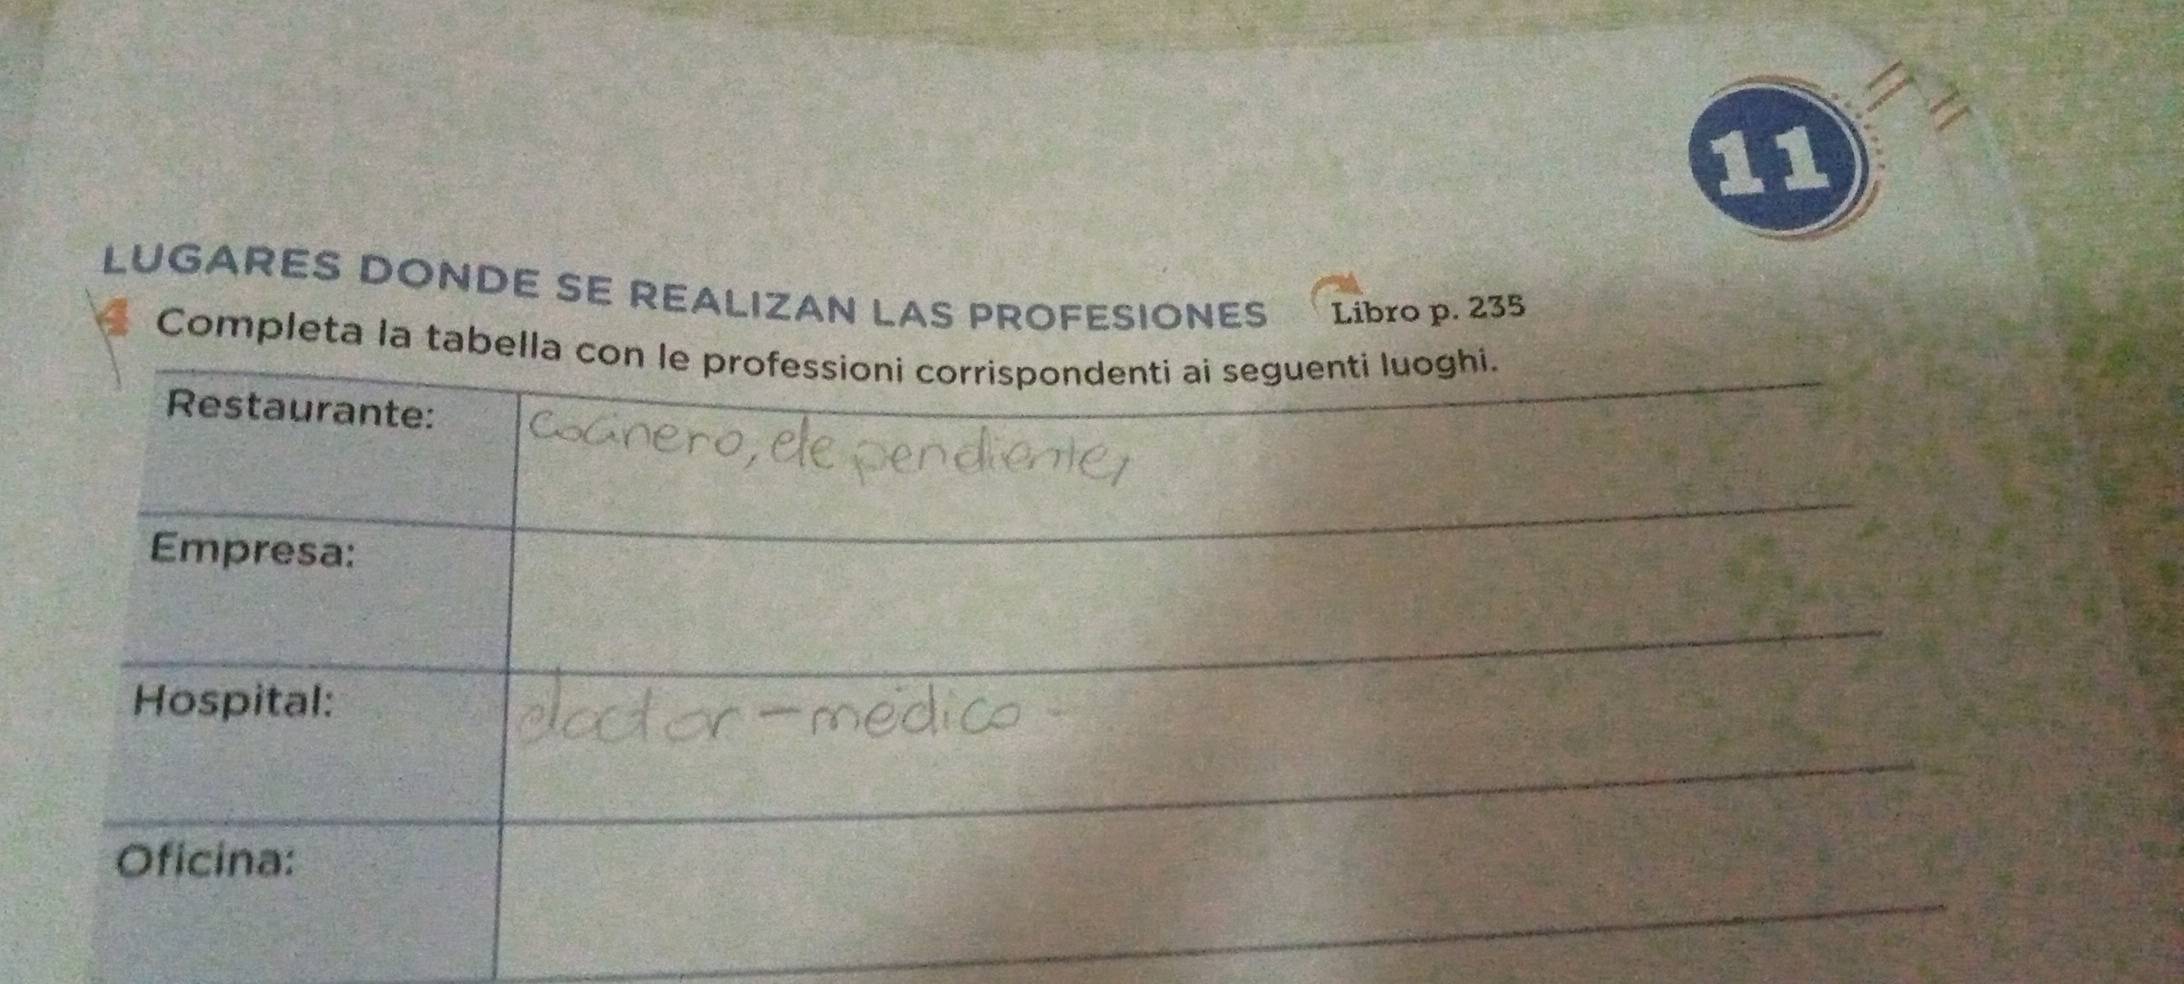 11
LUGARES DONDE SE REALIZAN LAS PROFESIONES Libro p. 235
4 Completa la tabella con le professioni corrispondenti ai seguenti luoghi.
Restaurante: cocinero, dependiente,
Empresa:
Hospital: doctor - medico -
Oficina: